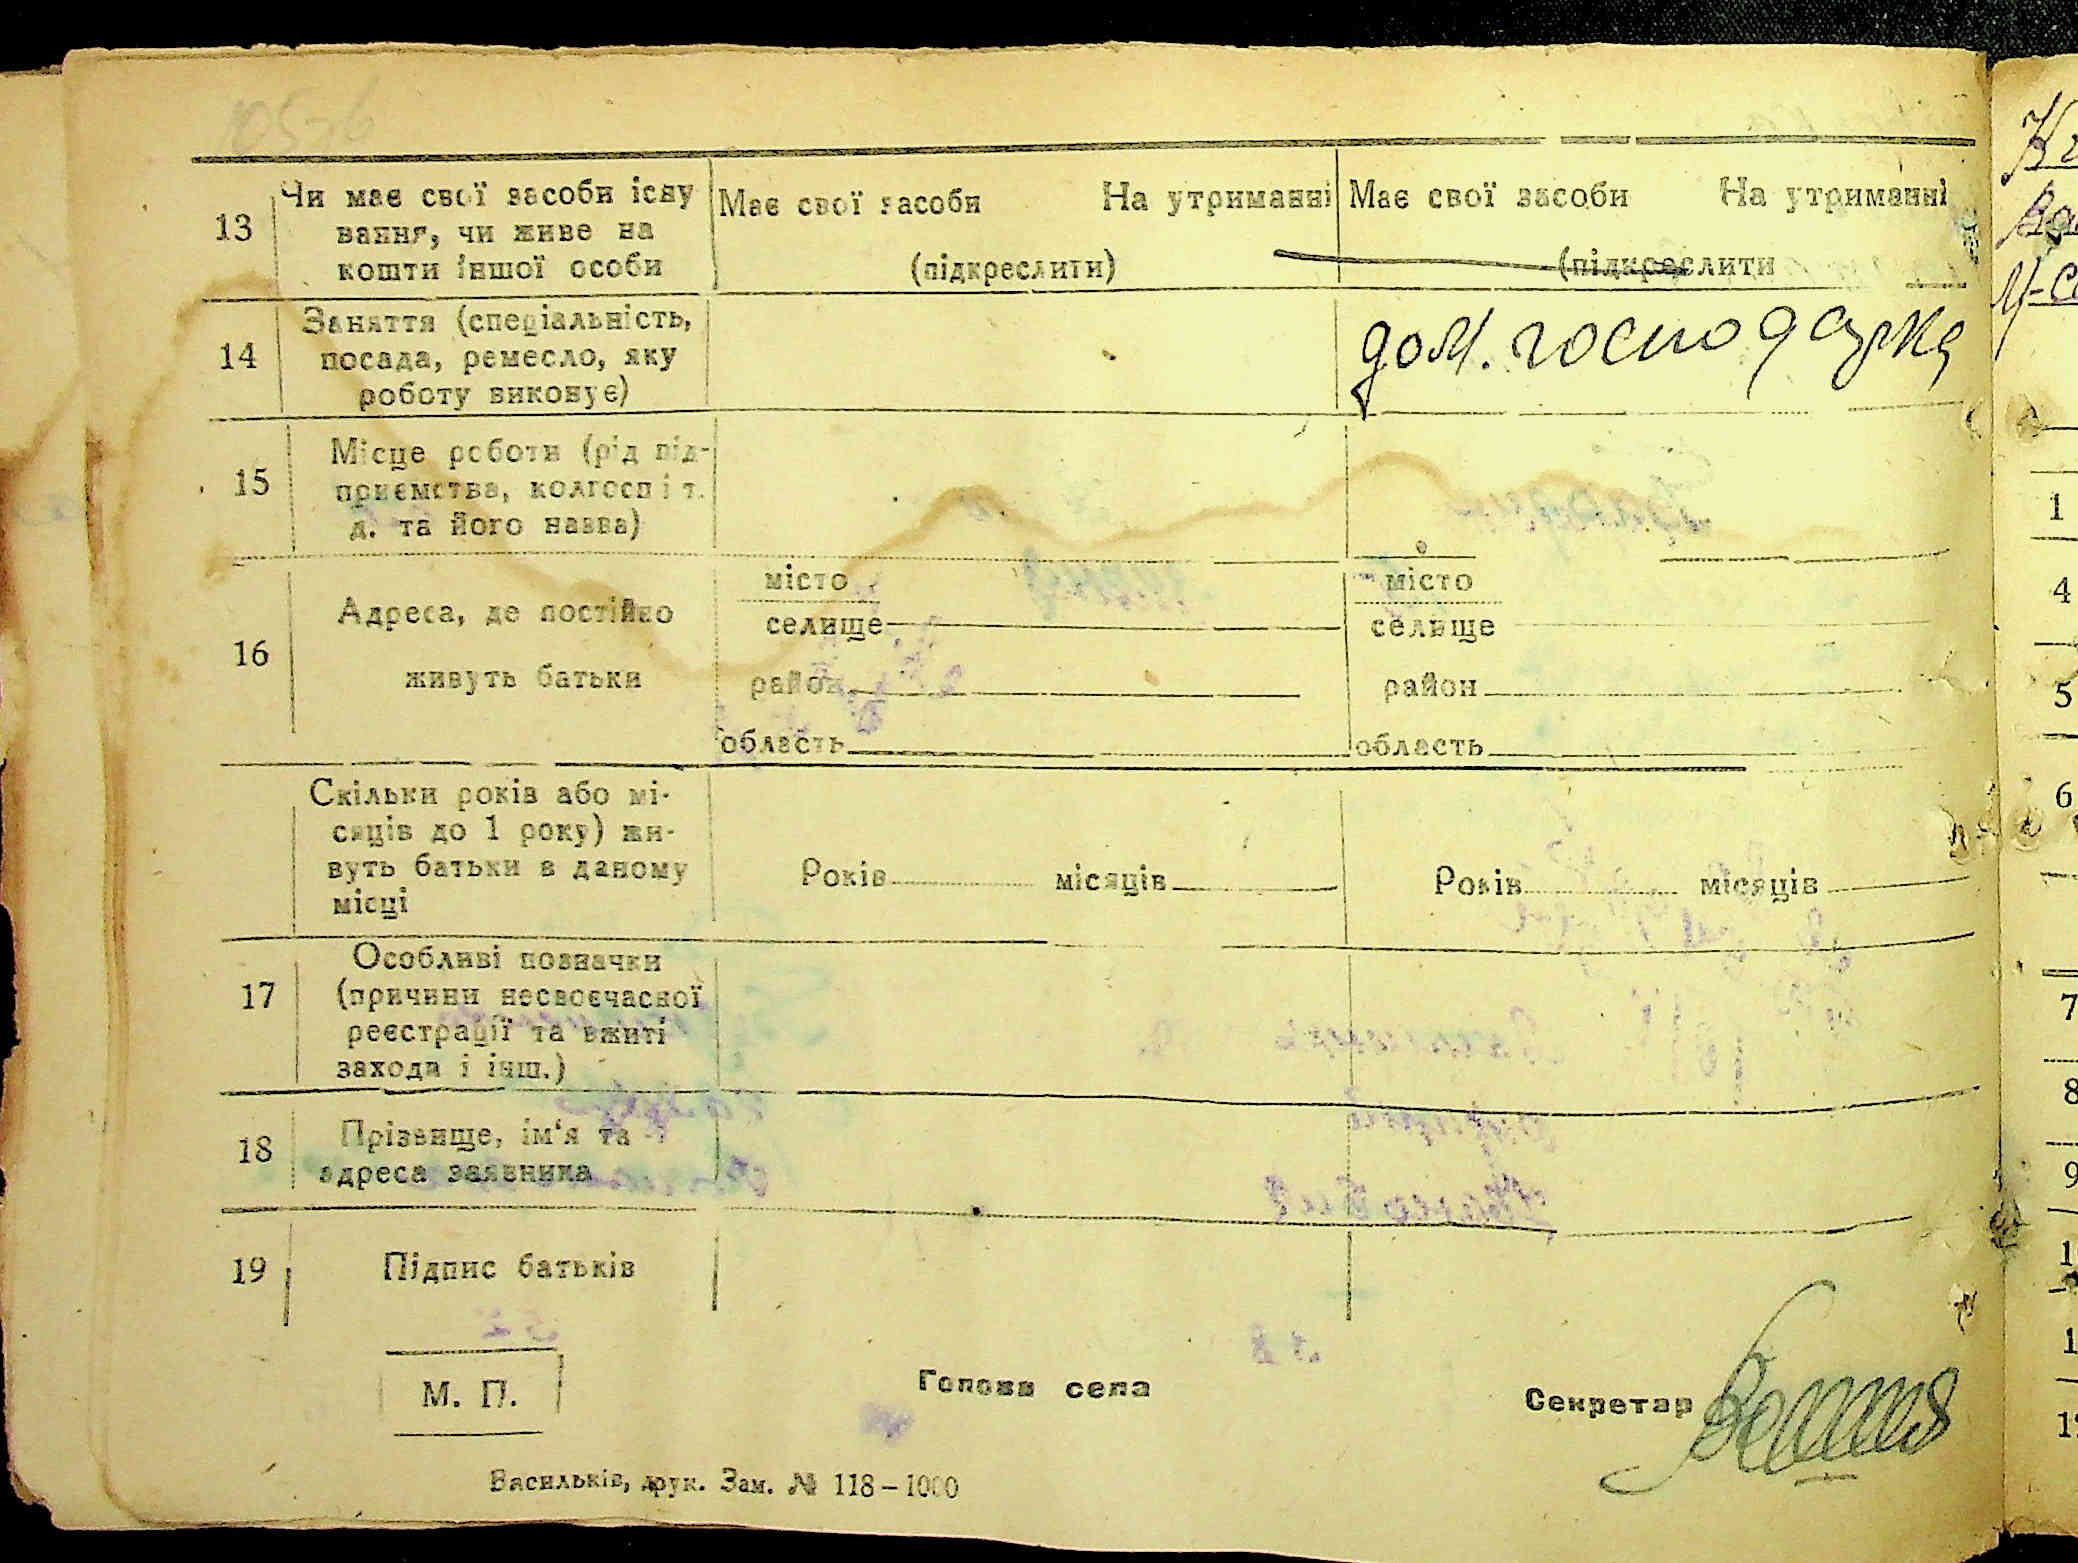 13 Чи має свої засоби існу Має свої засоби На утриманні Має свої засоби На утриманні
вання, чи живе на
кошти іншої особи (підкреслити) (підкреслити
14 Заняття (спеціальність,
посада, ремесло, яку
роботу виконує) дом. господарка
15 Місце роботи (рід під-
приємства, колгосп і т.
д. та його назва)
16 Адреса, де постійно
живуть батьки
місто місто
селище селище
район район
область область
Скільки років або мі-
сяців до 1 року) жи-
вуть батьки в даному
місці
Років місяців Років місяців
17 Особливі позначки
(причини несвоєчасної
реєстрації та вжиті
заходи і інш.)
18 Прізвище, ім‘я та
адреса заявника
19 Підпис батьків
М. П. Голова села Секретар
Васильків, друк. Зам. № 118 – 1000
1
4
5
6
7
8
9